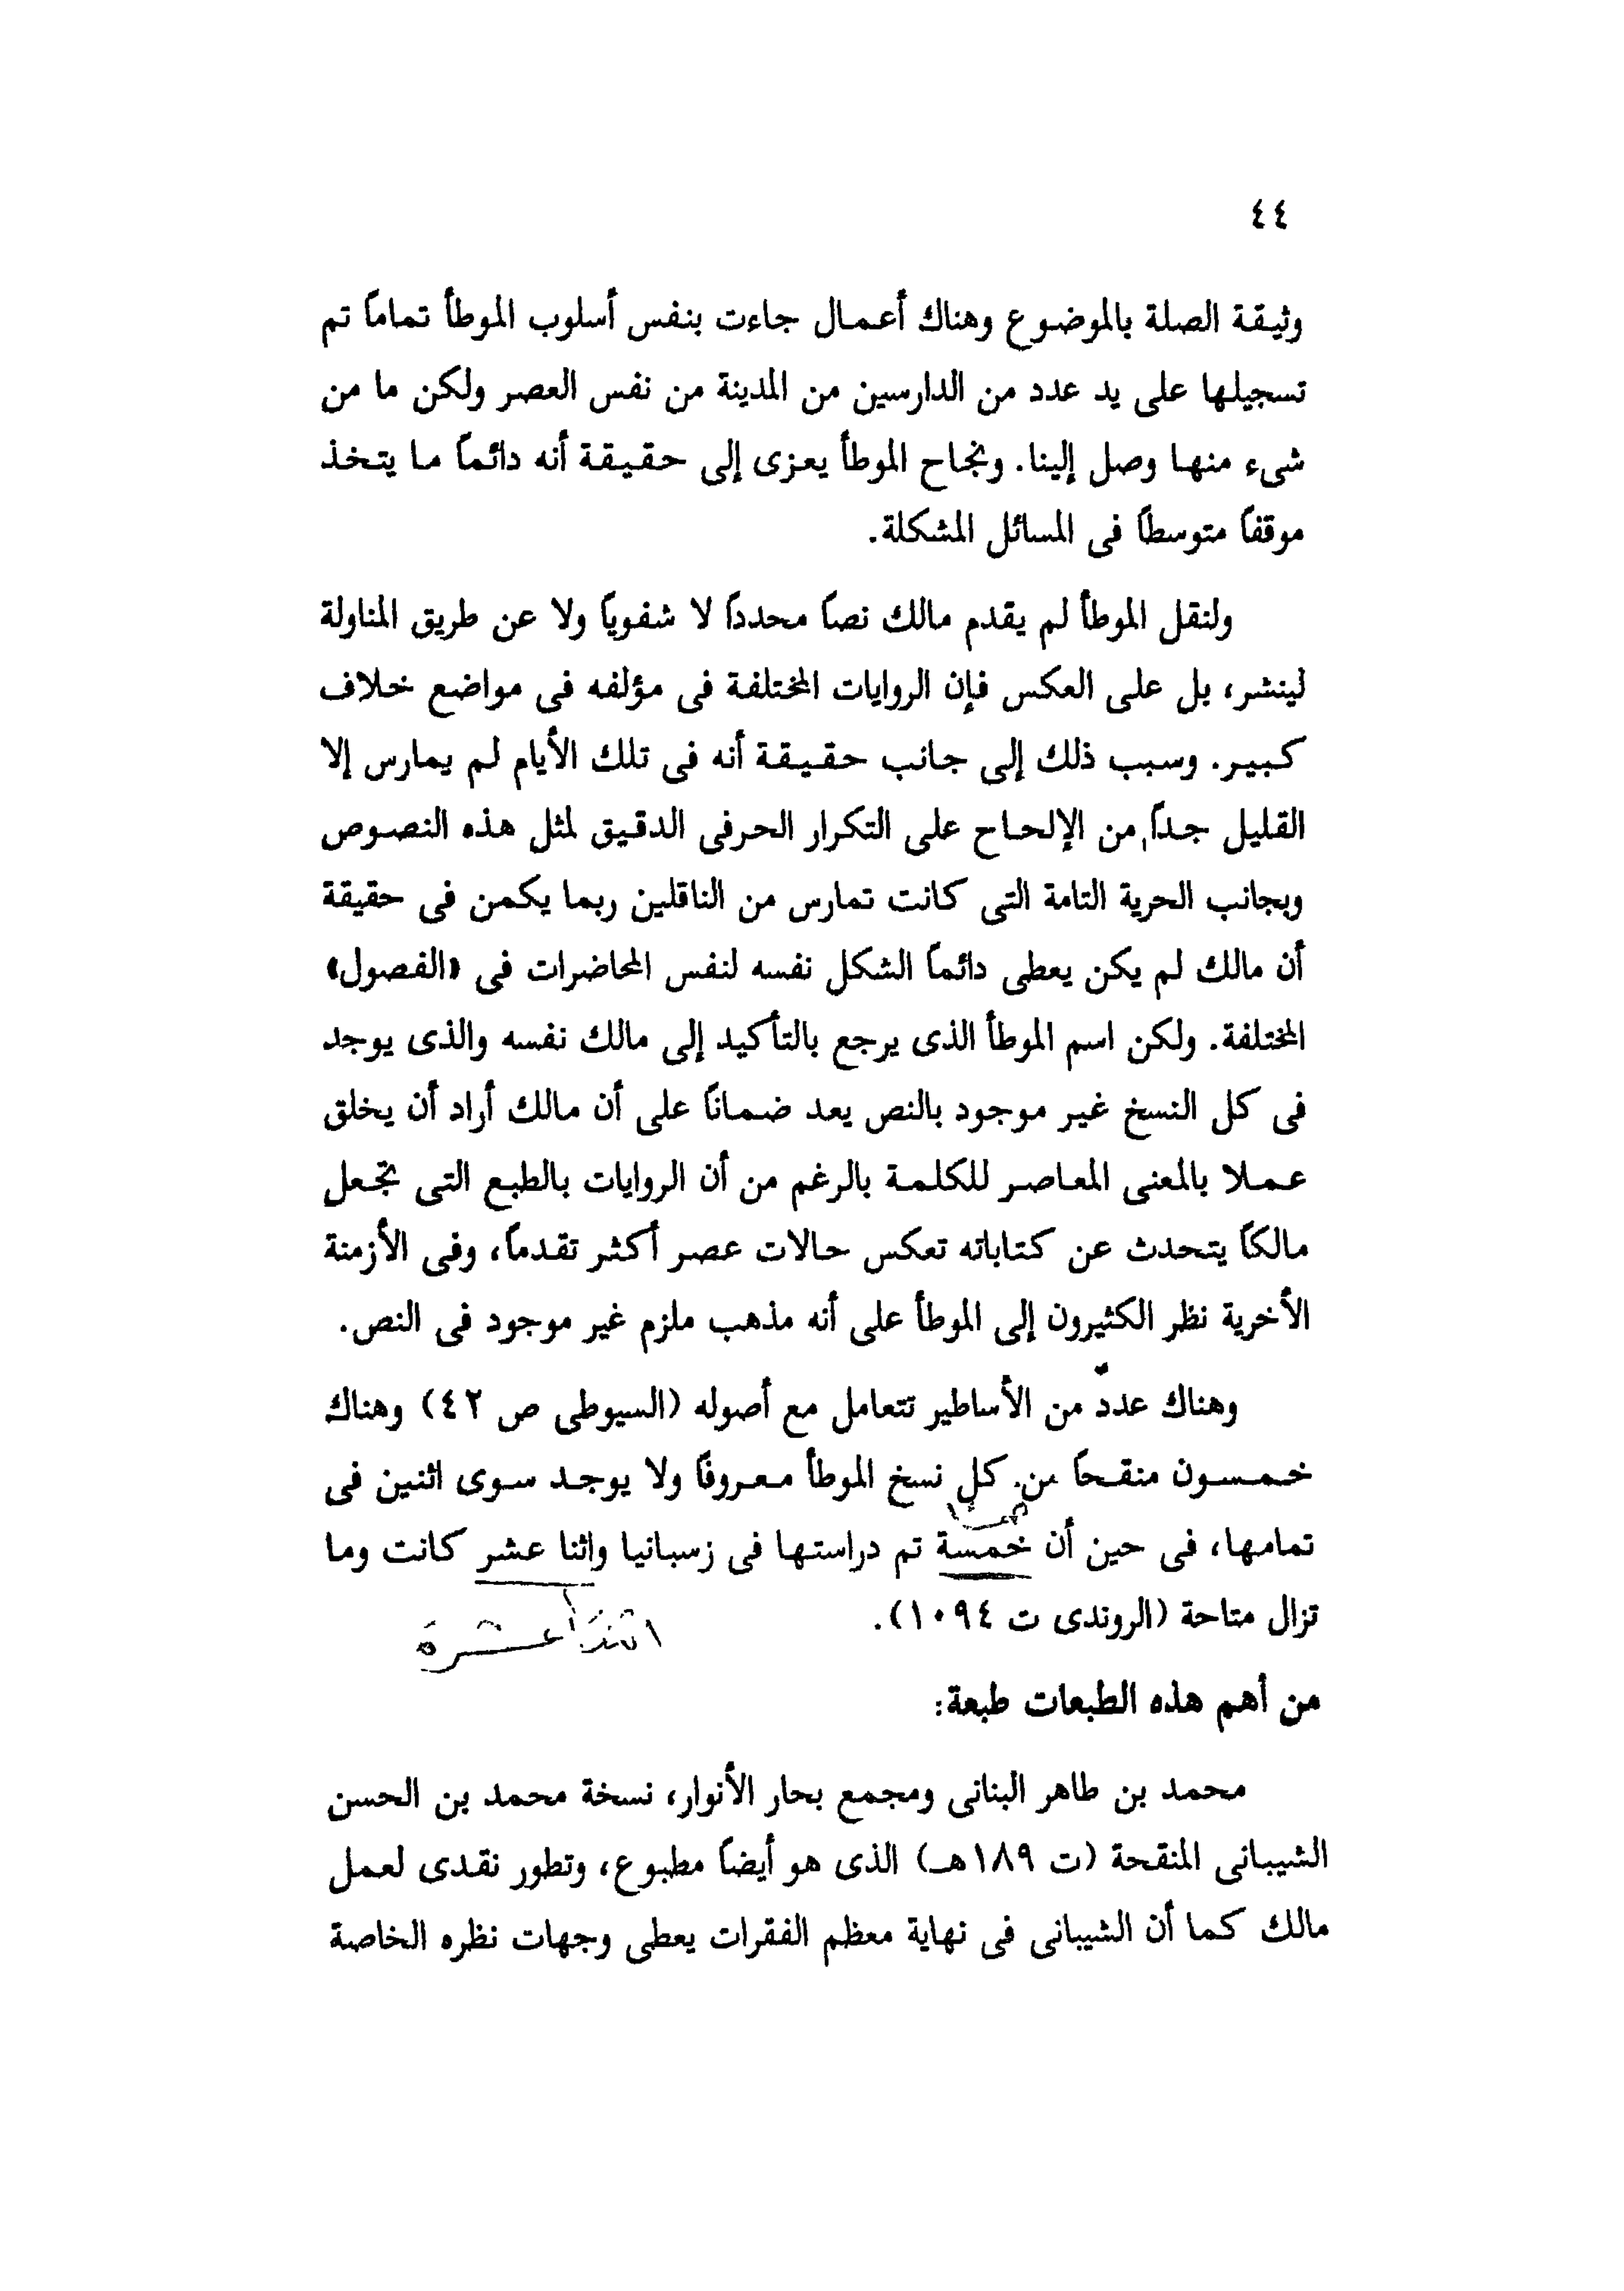 ٤٤
وثيقة الصلة بالموضوع وهناك أعمال جاءت بنفس أسلوب الموطأ تماماً تم
تسجيلها على يد عدد من الدارسين من المدينة من نفس العصر ولكن ما من
شىء منها وصل إلينا. ونجاح الموطأ يعزى إلى حقيقة أنه دائماً ما يتخذ
موقفاً متوسطاً فى المسائل المشكلة.
ولنقل الموطأ لم يقدم مالك نصاً محدداً لا شفوياً ولا عن طريق المناولة
لينشر، بل على العكس فإن الروايات المختلفة فى مؤلفه فى مواضع خلاف
كبير. وسبب ذلك إلى جانب حقيقة أنه فى تلك الأيام لم يمارس إلا
القليل جداً من الإلحاح على التكرار الحرفى الدقيق لمثل هذه النصوص
وبجانب الحرية التامة التى كانت تمارس من الناقلين ربما يكمن فى حقيقة
أن مالك لم يكن يعطى دائماً الشكل نفسه لنفس المحاضرات فى «الفصول»
المختلفة. ولكن اسم الموطأ الذى يرجع بالتأكيد إلى مالك نفسه والذى يوجد
فى كل النسخ غير موجود بالنص يعد ضماناً على أن مالك أراد أن يخلق
عملا بالمعنى المعاصر للكلمة بالرغم من أن الروايات بالطبع التى تجعل
مالكاً يتحدث عن كتاباته تعكس حالات عصر أكثر تقدماً، وفى الأزمنة
الأخرية نظر الكثيرون إلى الموطأ على أنه مذهب ملزم غير موجود فى النص.
وهناك عدد من الأساطير تتعامل مع أصوله (السيوطى ص ٤٢) وهناك
خمسون منقحاً من كل نسخ الموطأ معروفاً ولا يوجد سوى اثنين فى
تمامها، فى حين أن خمسة تم دراستها فى زسبانيا واثنا عشر كانت وما
تزال متاحة (الروندى ت ١٠٩٤).
اثنتا عشرة
من أهم هذه الطبعات طبعة:
محمد بن طاهر البنانى ومجمع بحار الأنوار، نسخة محمد بن الحسن
الشيبانى المنقحة (ت ١٨٩هـ) الذى هو أيضاً مطبوع، وتطور نقدى لعمل
مالك كما أن الشيبانى فى نهاية معظم الفقرات يعطى وجهات نظره الخاصة